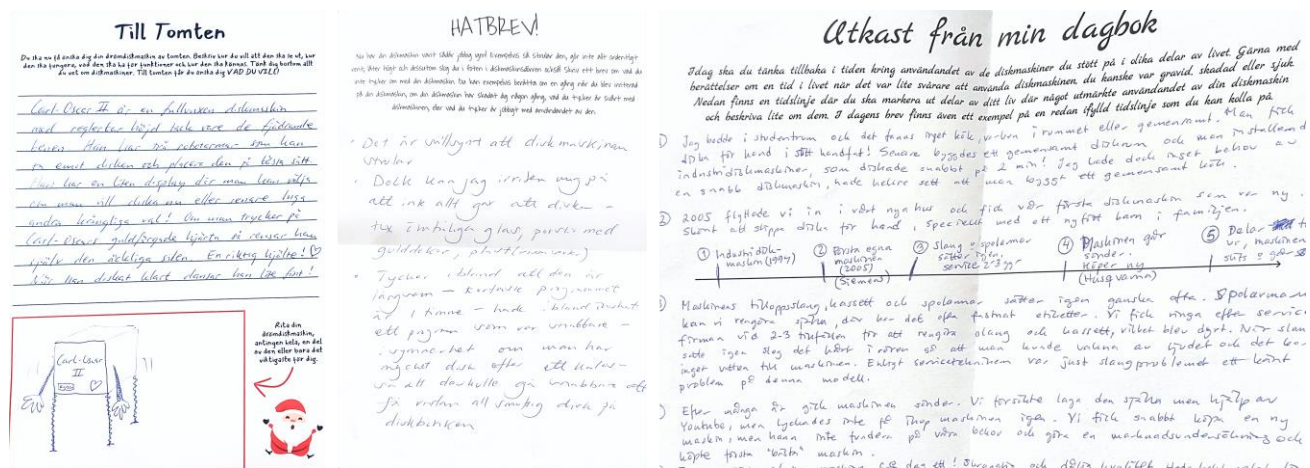 Till Tomten
Du ska nu få önska dig din drömdiskmaskin av tomten. Beskriv hur du vill att den ska se ut, hur
den ska fungera, vad den ska ha för funktioner och hur den ska kännas. Tänk dig bortom allt
du vet om diskmaskiner. Till tomten får du önska dig VAD DU VILL!
Carl-Oscar II är en fullvuxen diskmaskin
med reglerbar höjd tack vare de fjädrande
benen. Han har två robotarmar som kan
ta emot disken och placera den på bästa sätt.
Han har en liten display där man kan välja
om man vill diska nu eller senare. Inga
andra krångliga val! Om man trycker på
Carl-Oscars guldfärgade hjärta så rensar han
själv den äckliga silen. En riktig hjälte!
När han diskat klart dansar han lite fint!
Carl-Oscar
II
Rita din
drömdiskmaskin,
antingen hela, en del
av den eller bara det
viktigaste för dig.
HATBREV!
Nu har din diskmaskin varit sådär jobbig igen! Exempelvis så strular den, går inte att
låter högt och dessutom slog du i foten i diskmaskinsluckan också! Skriv ett brev om vad du
inte tycker om med din diskmaskin.
· Det är sällsynt att diskmaskinen
strular
· Dock kan jag irritera mig på
att ink allt går att diska -
tex ömtåliga glas, porslin med
gulddekor,
· Tycker ibland att den är
långsam - kortaste programmet
är 1 timme - hade ibland önskat
ett program som var snabbare -
synnerhet om man har
mycket disk efter ett kalas -
så att det skulle gå snabbare att
få undan all smutsig disk på
diskbänken
Utkast från min dagbok
Idag ska du tänka tillbaka i tiden kring användandet av de diskmaskiner du stött på i olika delar av livet. Gärna med
berättelser om en tid i livet när det var lite svårare att använda diskmaskinen du kanske var gravid, skadad eller sjuk
Nedan finns en tidslinje där du ska markera ut delar av ditt liv där något utmärkte användandet av din diskmaskin
och beskriva lite om dem. I dagens brev finns även ett exempel på en redan ifylld tidslinje som du kan kolla på
1) Jag bodde i studentrum och det fanns inget kök, varken i rummet eller gemensamt. Man fick
diska för hand i sitt handfat! Senare byggdes ett gemensamt diskrum och man installerade
industridiskmaskiner, som diskade snabbt på 2 min! Jag hade dock inget behov av
en snabb diskmaskin, hade hellre sett att man byggt ett gemensamt kök.
2) 2005 flyttade vi in i vårt nya hus och fick vår första diskmaskin som var ny.
Skönt att slippa diska för hand, speciellt med ett nyfött barn i familjen.
① Industridisk-
maskin (1994)
② Första egna
maskinen
(2005)
(Siemens)
③ Slang o spolarmar
sätter igen,
service 2-3 ggr
④ Maskinen går
sönder.
Köper ny
(Husqvarna)
⑤ Delar
ur, maskinen
3) Maskinens tilloppsslang, kassett och spolarmar sätter igen ganska ofta. Spolarmarna
kan vi rengöra själva, där har det ofta fastnat etiketter. Vi fick ringa efter service
firman vid 2-3 tillfällen för att rengöra slang och kassett, vilket blev dyrt. När slangen
satte igen slog det hårt i rören så att man kunde vakna av ljudet och det kom
inget vatten till maskinen. Enligt serviceteknikern var just slangproblemet ett känt
problem på denna modell.
) Efter många år gick maskinen sönder. Vi försökte laga den själva men hjälp av
Youtube, men lyckades inte få ihop maskinen igen. Vi fick snabbt köpa en ny
maskin, men hann inte fundera på våra behov och göra en marknadsundersökning och
köpte första "bästa" maskin.